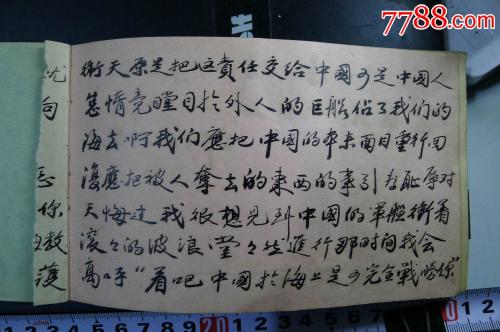 7788.com
衡天原是把这責任交给中國可是中國人
怠惰竟瞠目扵外人的巨船佔了我们的
海去啊我们應把中國的本来面目重行回
復應把被人奪去的東西的事引為恥辱对
天悔过我很想見到中國的軍船衝着
滚々的波浪堂々些進行那时间我会
高呼“看吧中國扵海上是可完全戰勝你”
向
你
教
護
20